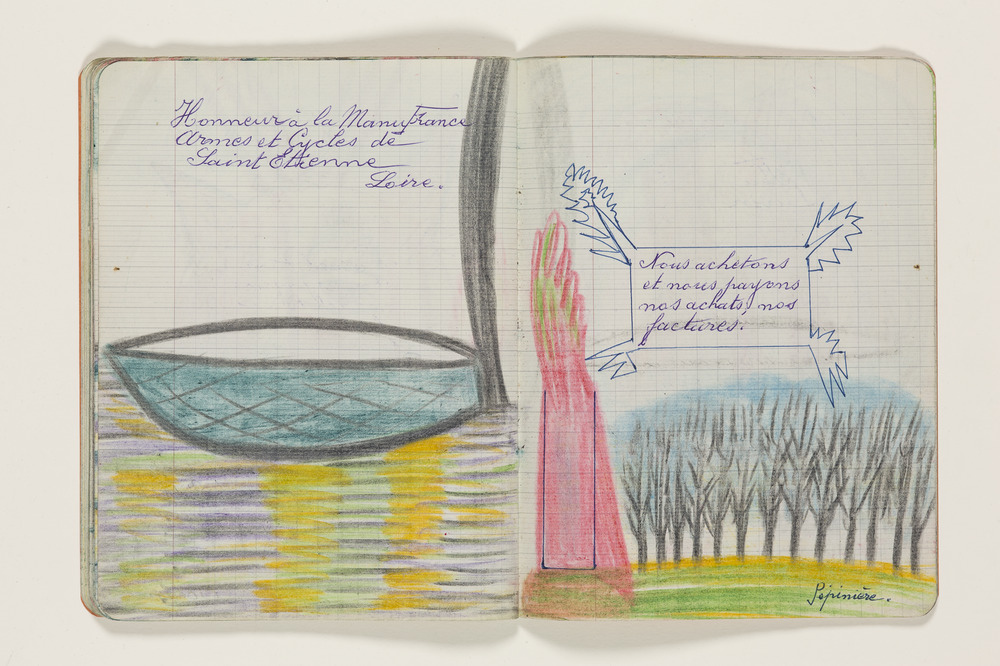 Honneur à la ManuFrance
Armes et Cycles de
Saint Etienne
Loire.
Nous achetons
et nous payons
nos achats, nos
factures.
Pépinière.